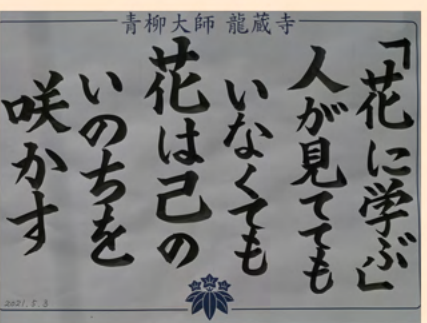 青柳大師 龍蔵寺
「花に学ぶ」
人が見てても
いなくても
花は己の
いのちを
咲かす
2021.5.3